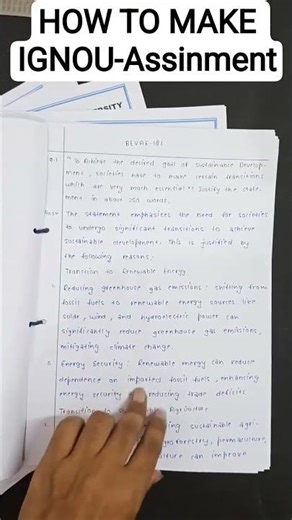 HOW TO MAKE
IGNOU-Assinment
BEVAE-181
Q.1 "To Achieve the desired goal of Sustainable Develop-
ment, societies have to make certain transitions
which are very much essential". Justify the state-
ment in about 250 words.
The statement emphasizes the need for societies
to undergo significant transitions to achieve
sustainable development. This is justified by
the following reasons:
Transition to Renewable Energy
Reducing greenhouse gas emissions: Shifting from
fossil fuels to renewable energy sources like
solar, wind, and hydroelectric power can
significantly reduce greenhouse gas emissions,
mitigating climate change.
2. Energy Security: Renewable energy can reduce
dependence on imported fossil fuels, enhancing
energy security reducing trade deficits
Transition to Agriculture
ing sustainable agri-
agroforestry, permaculture,
culture can improve